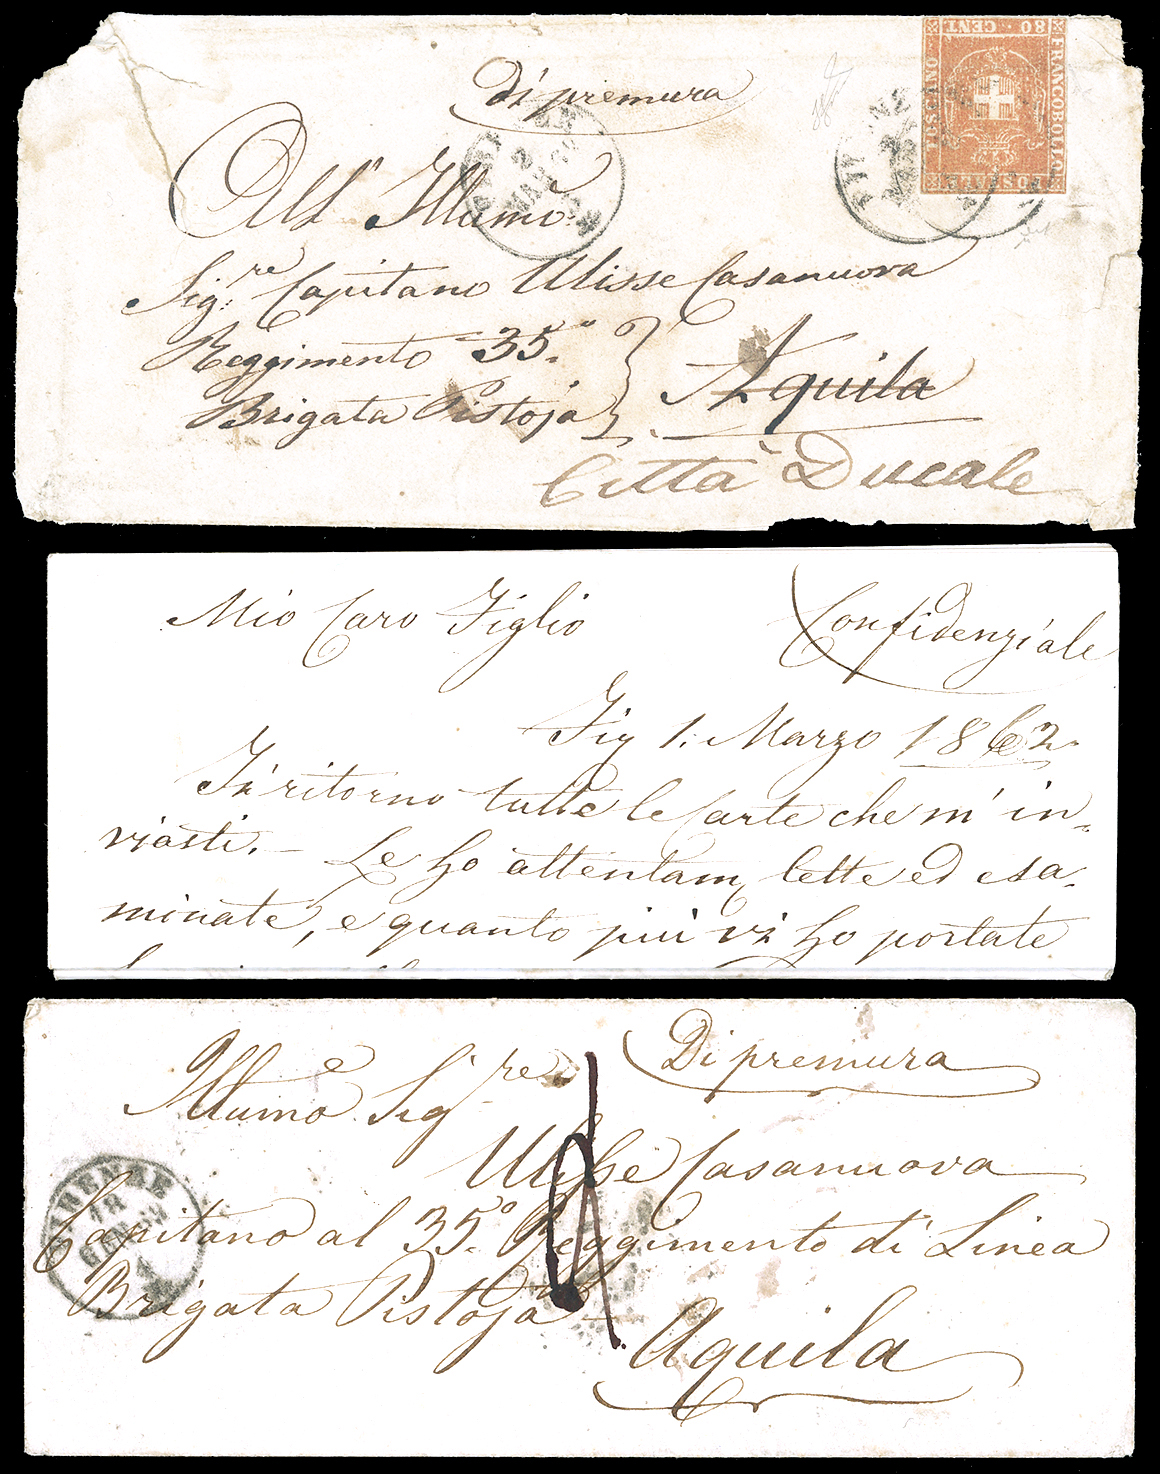 Di premura
80 CENT
FRANCOBOLLO
TOSCANO
All' Illumo:
Sig:re Capitano Ulisse Casanuova
Reggimento 35.o
Brigata Pistoja
Aquila
Città Ducale
Mio Caro Figlio
Confidenziale
1. Marzo 1862
In ritorno tutte le Carte che m' in-
viasti. - Le ho attentam lette ed esa-
minate, e quanto più vi ho portate
Di premura
Illumo Sigre
Ulisse Casanuova
Capitano al 35.o Reggimento di Linea
Brigata Pistoja
Aquila
FIRENZE
18
4